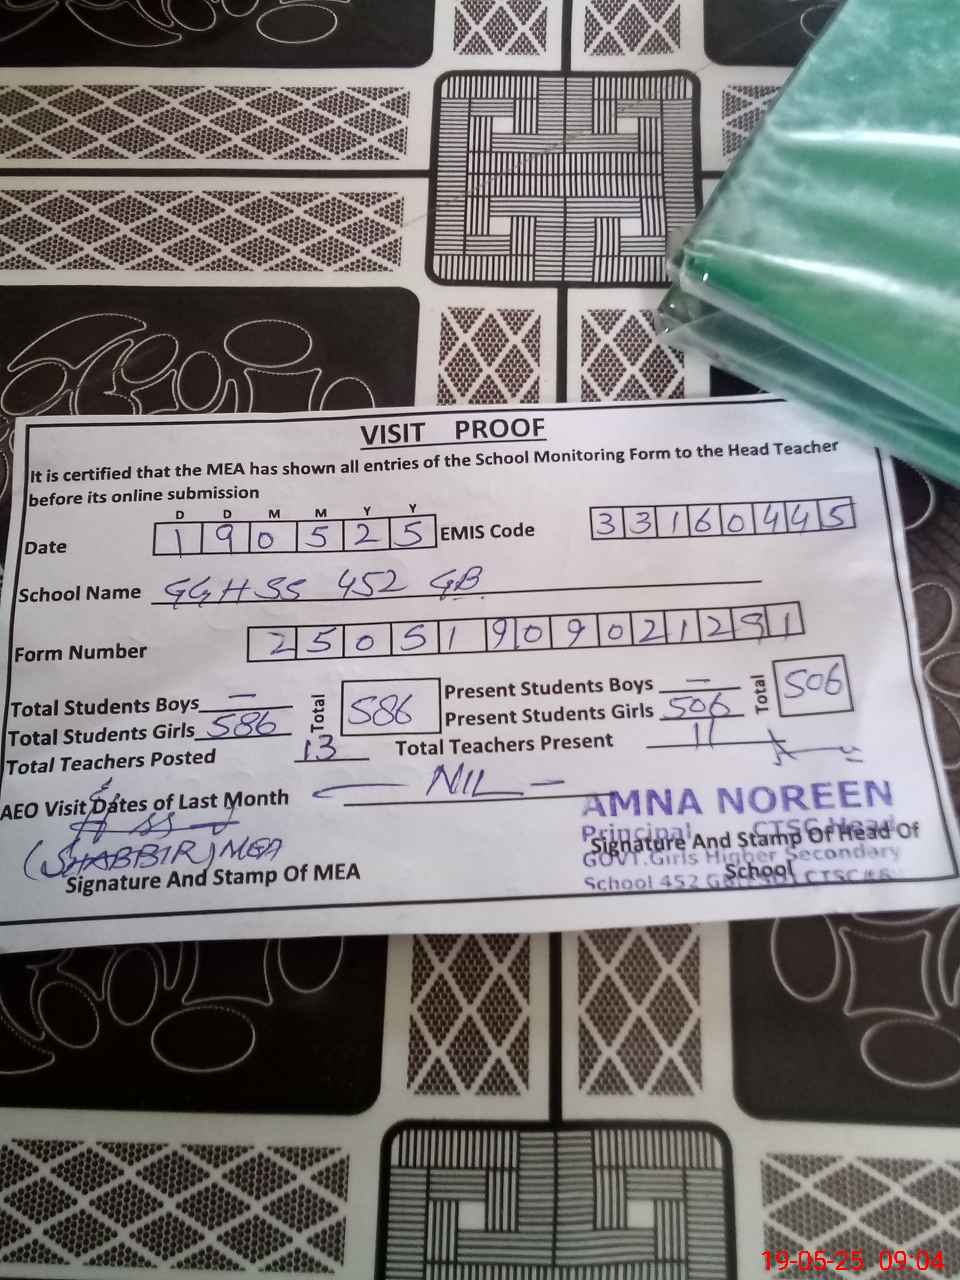 VISIT PROOF
It is certified that the MEA has shown all entries of the School Monitoring Form to the Head Teacher
before its online submission
D D M M Y Y
Date 1 9 0 5 2 5 EMIS Code 3 3 1 6 0 4 4 5
School Name GGHSS 452 GB
Form Number 2 5 0 5 1 9 0 9 0 2 1 2 9 1
Total Students Boys — Total 586 Present Students Boys — Total 506
Total Students Girls 586 Present Students Girls 506
Total Teachers Posted 13 Total Teachers Present 11
AEO Visit Dates of Last Month — NIL —
(SHABBIR) MEA
Signature And Stamp Of MEA
AMNA NOREEN
Principal CTSC Head
Signature And Stamp Of Head Of
GOVT.Girls Higher Secondary
School
School 452 CTSC
19-05-25 09:04